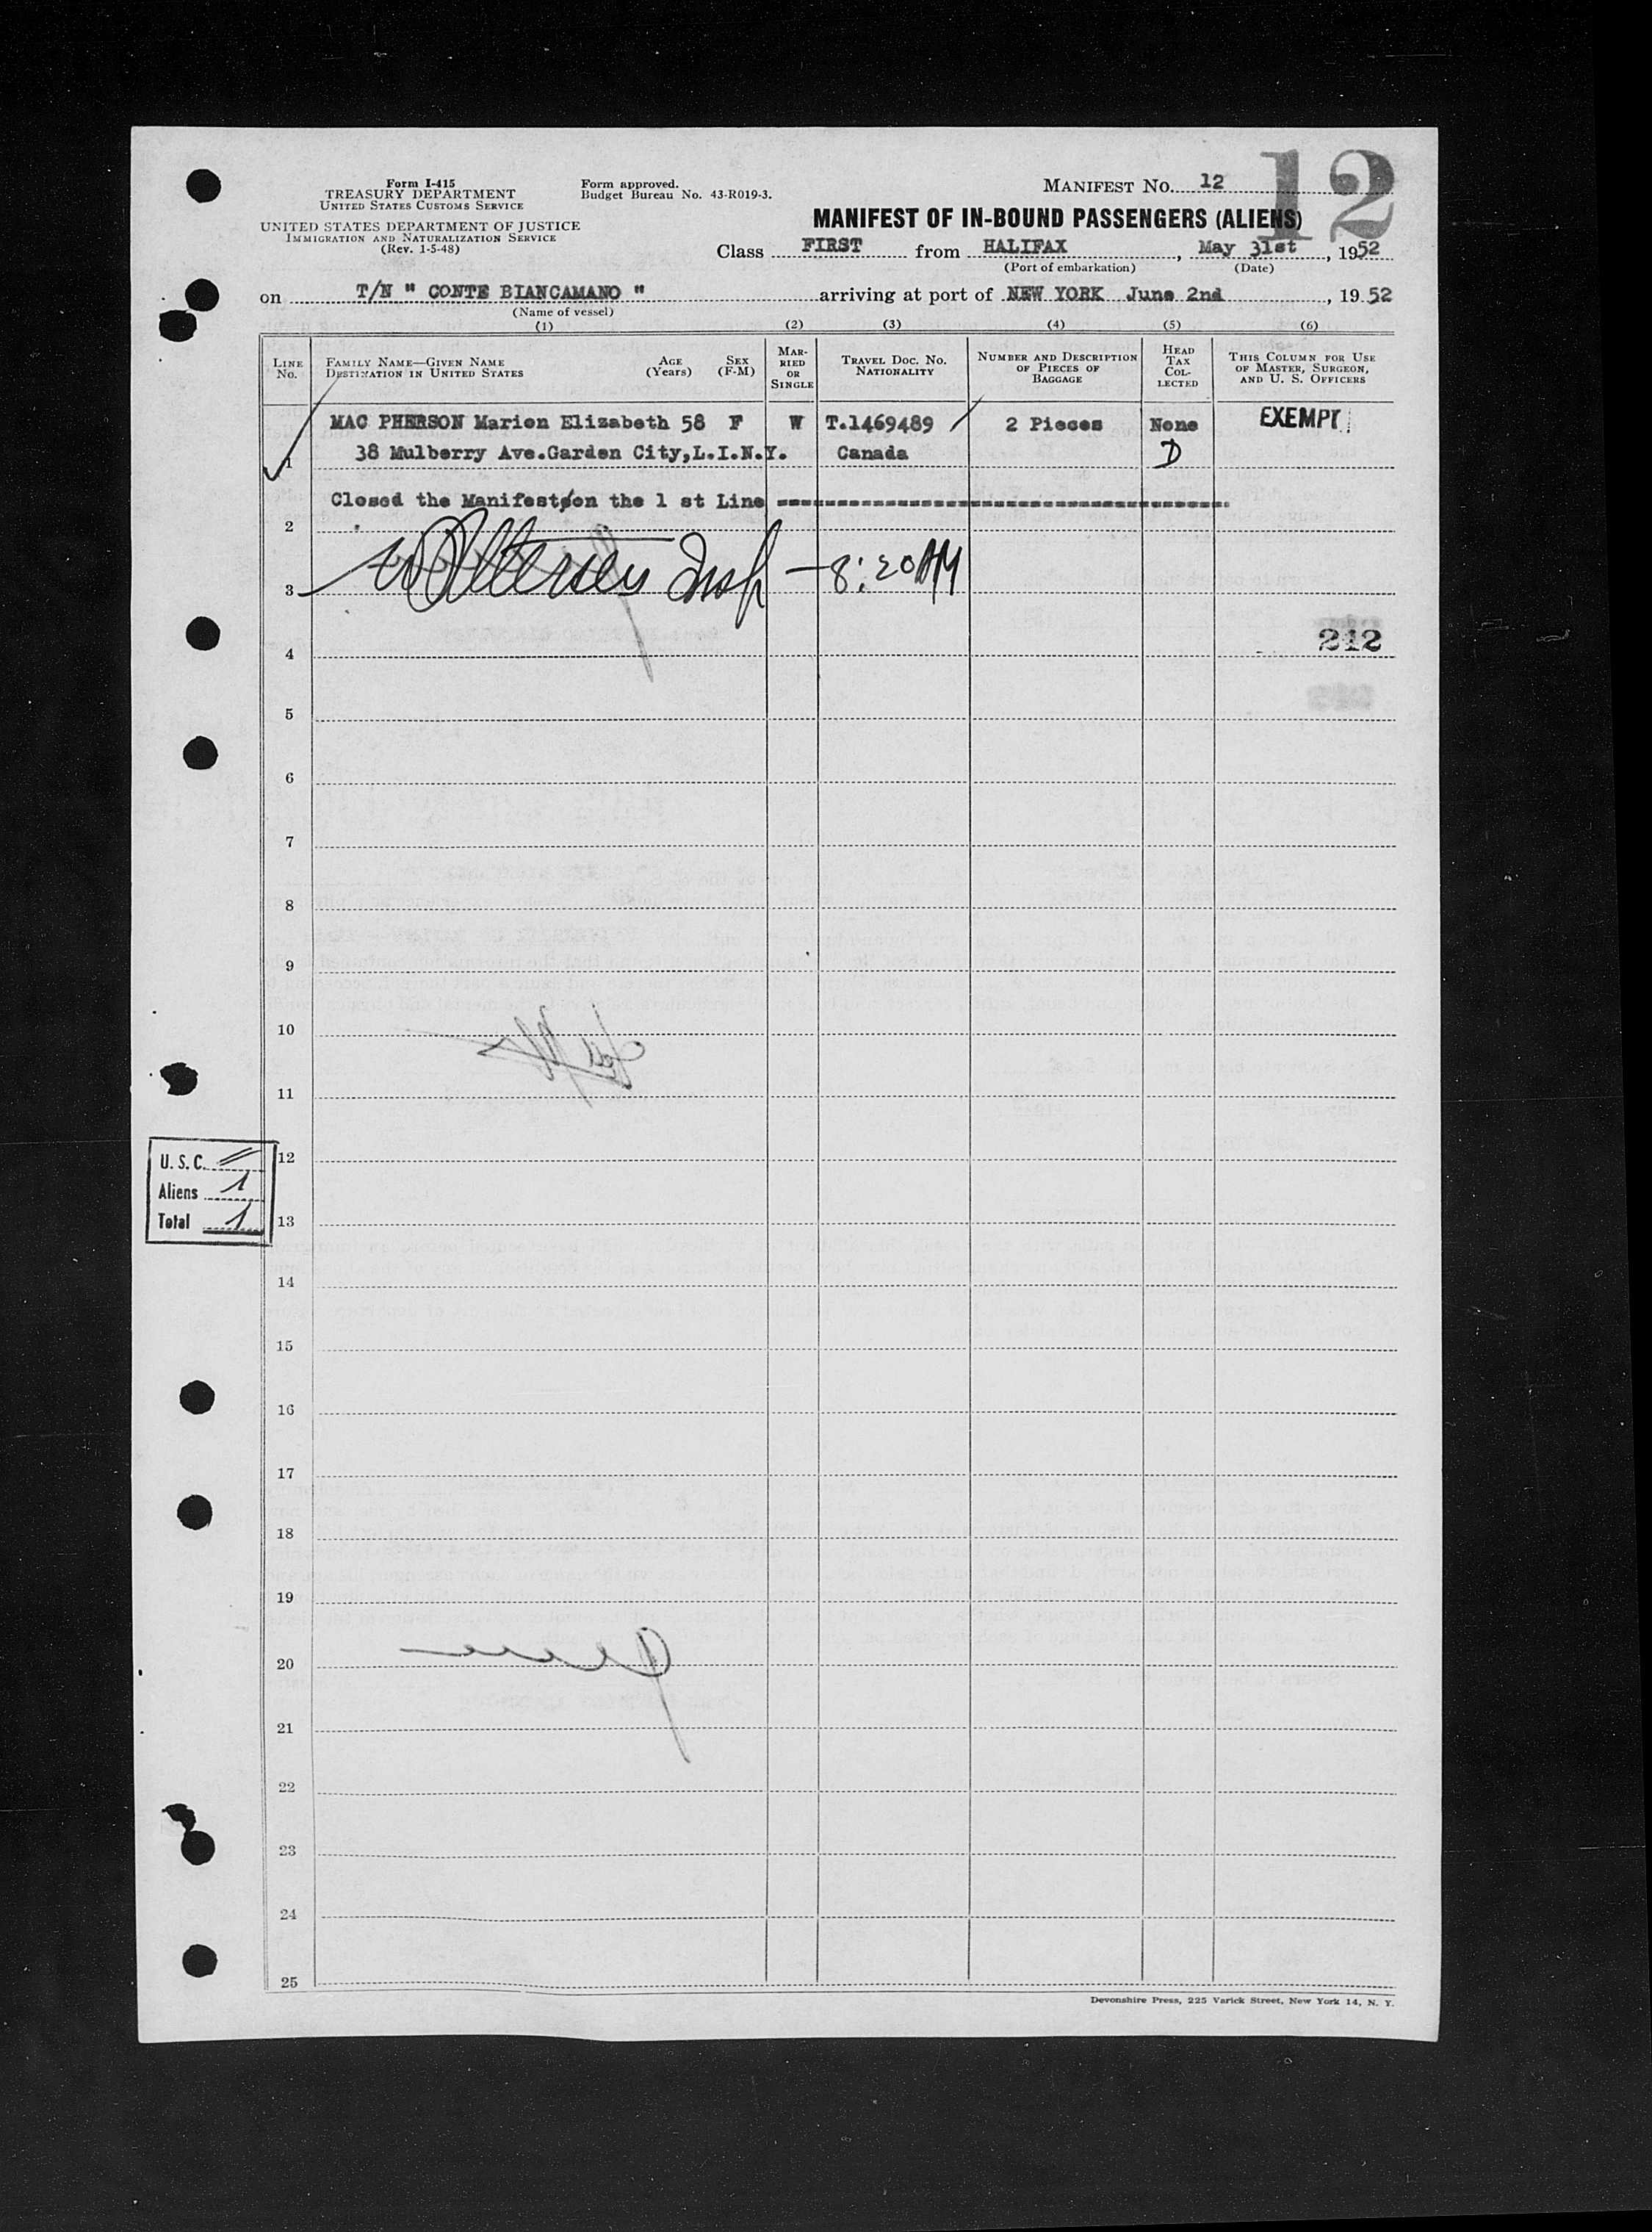 12
Form I-415
TREASURY DEPARTMENT
UNITED STATES CUSTOMS SERVICE
UNITED STATES DEPARTMENT OF JUSTICE
IMMIGRATION AND NATURALIZATION SERVICE
(Rev. 1-5-48)
Form approved.
Budget Bureau No. 43-R019-3.
MANIFEST NO. 12
MANIFEST OF IN-BOUND PASSENGERS (ALIENS)
Class FIRST from HALIFAX, May 31st, 1952
(Port of embarkation) (Date)
on T/N " CONTE BIANCAMANO " arriving at port of NEW YORK June 2nd, 19 52
(Name of vessel)
(1) (2) (3) (4) (5) (6)
LINE No. FAMILY NAME—GIVEN NAME DESTINATION IN UNITED STATES AGE (Years) SEX (F-M) MARRIED OR SINGLE TRAVEL DOC. NO. NATIONALITY NUMBER AND DESCRIPTION OF PIECES OF BAGGAGE HEAD TAX COLLECTED THIS COLUMN FOR USE OF MASTER, SURGEON, AND U. S. OFFICERS
MAC PHERSON Marion Elizabeth 58 F W T.1469489 2 Pieces None EXEMPT
1 38 Mulberry Ave.Garden City,L.I.N.Y. Canada D
Closed the Manifest on the 1 st Line
2
3 Insp — 8:20 AM
242
4
5
6
7
8
9
10
11
12
U. S. C.
Aliens 1
Total 1
13
14
15
16
17
18
19
20
21
22
23
24
25
Devonshire Press, 225 Varick Street, New York 14, N. Y.